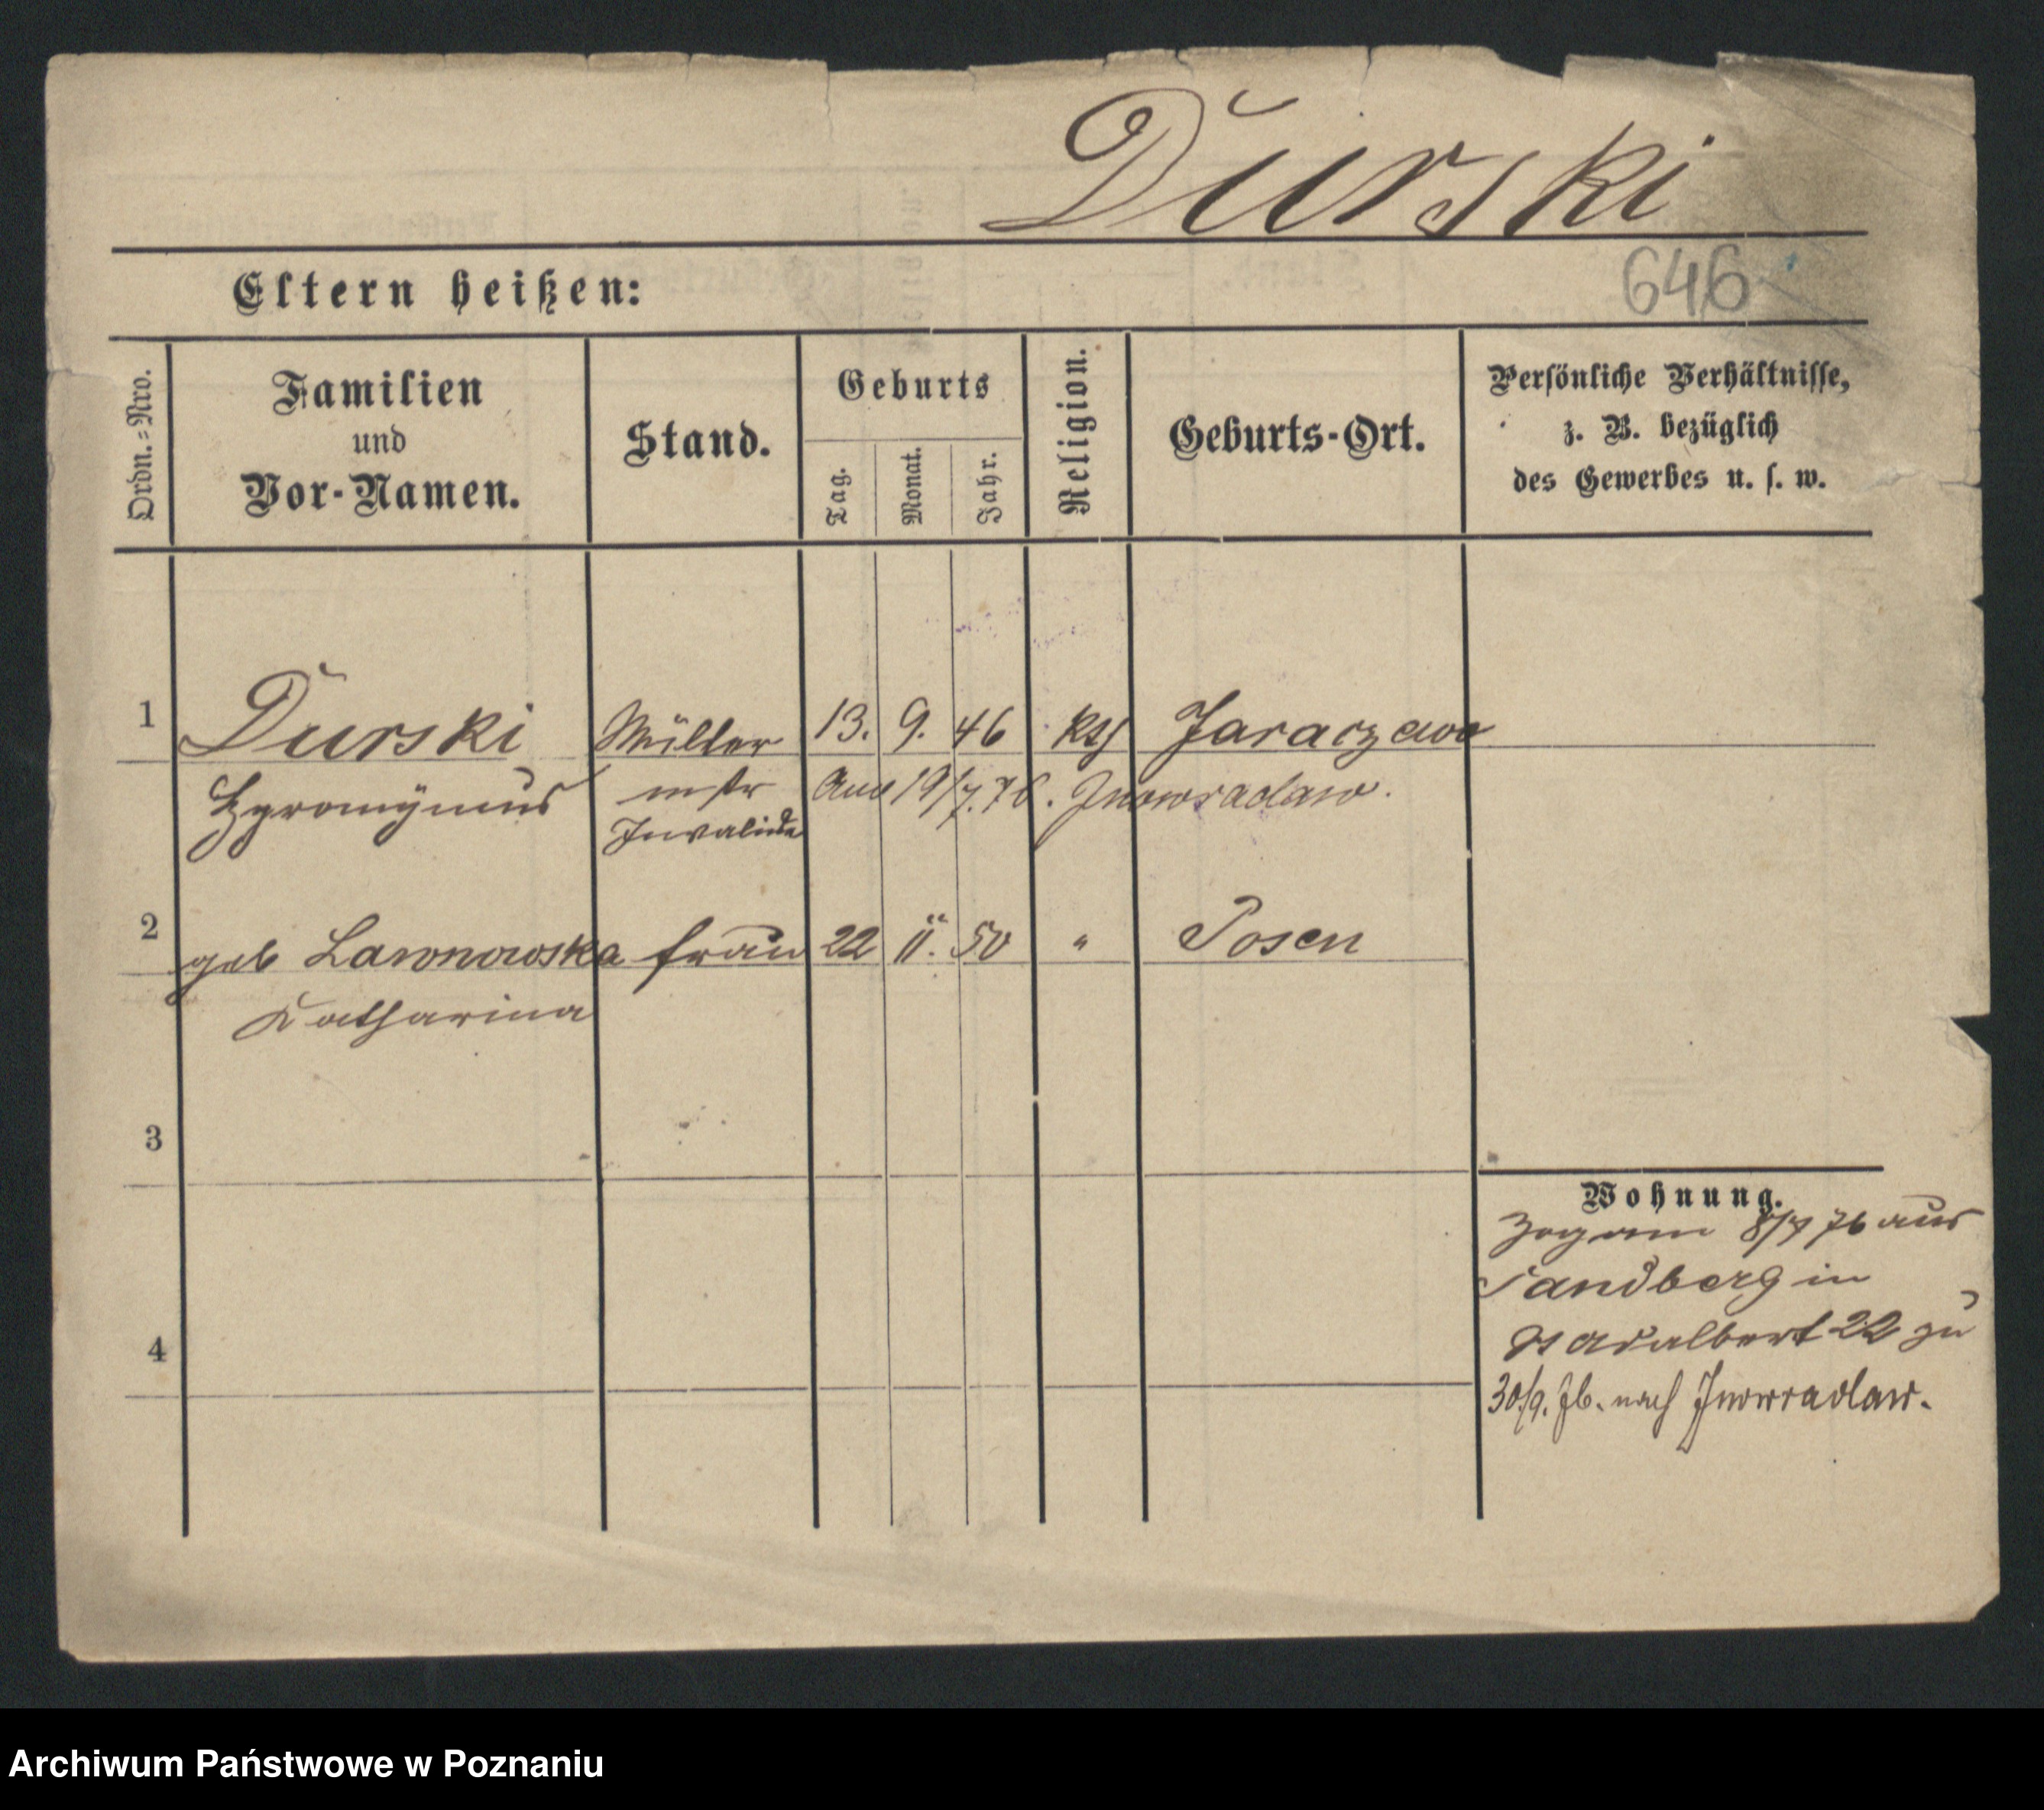 Durski
646
Eltern heißen:
Ordn.=Nro.
Familien
und
Vor-Namen.
Stand.
Geburts
Tag.
Monat.
Jahr.
Religion.
Geburts-Ort.
Persönliche Verhältnisse,
z. B. bezüglich
des Gewerbes u. s. w.
1 Durski Müller 13. 9. 46 kth Jaraczewo
Hyronymus mstr 19/7. 76. Inowraclaw.
Invalide
2 geb Lawnowska frau 22 11. 50 " Posen
Katharina
3
4
Wohnung.
Zog am 8/7 76 aus
Sandberg in
St Adalbert 22 zu
30/9. 76. nach Inowraclaw.
Archiwum Państwowe w Poznaniu